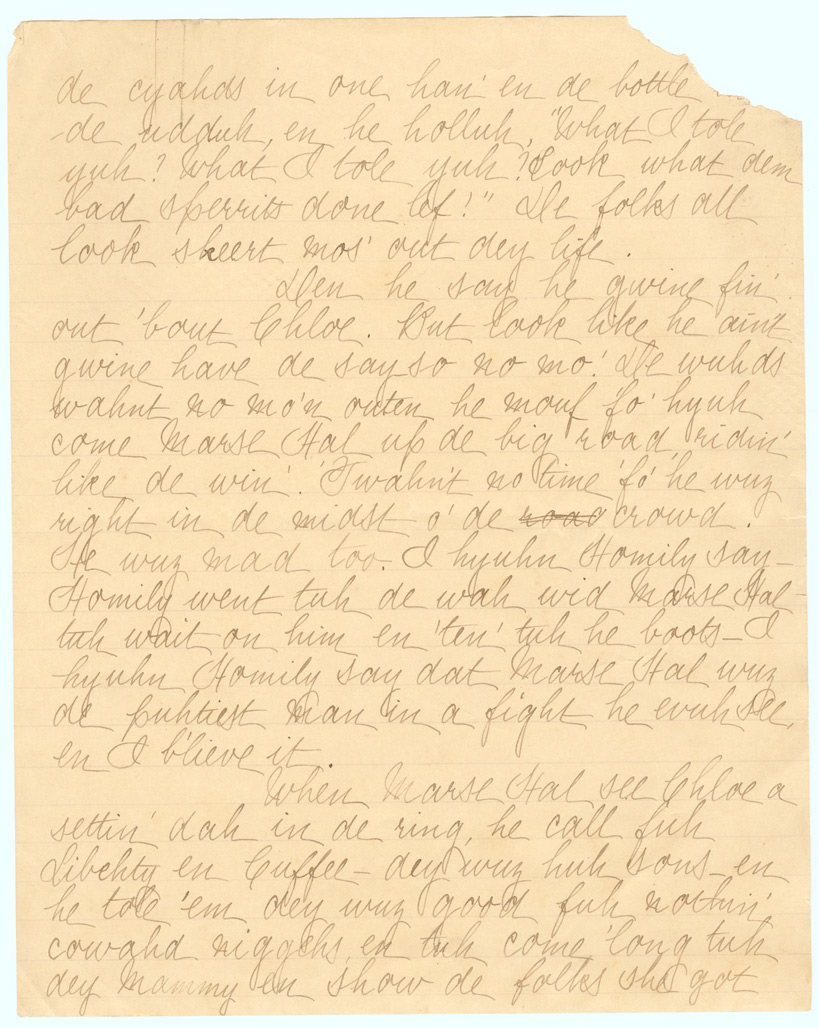 de cyahds in one han' en de bottle
de udduh, en he holluh, "What I tole
yuh? What I tole yuh? Look what dem
bad sperrits done lef!" De folks all
look skeert mos' out dey life.
Den he say he gwine fin'
out 'bout Chloe. But look like he ain't
gwine have de say-so no mo'. De wuhds
wahnt no mo'n outen he mouf fo' hyuh
come Marse Hal up de big road ridin'
like de win'. 'Twahn't no time 'fo' he wuz
right in de midst o' de road crowd.
He wuz mad too. I hyuhn Homily say–
Homily went tuh de wah wid Marse Hal–
tuh wait on him en 'ten' tuh he boots– I
hyuhn Homily say dat Marse Hal wuz
de puhtiest man in a fight he evuh see,
en I b'lieve it.
When Marse Hal see Chloe a
settin' dah in de ring, he call fuh
Libehty en Cuffee– dey wuz huh sons– en
he tole 'em dey wuz good fuh nothin'
cowahd niggehs, en tuh come 'long tuh
dey Mammy en show de folks she got